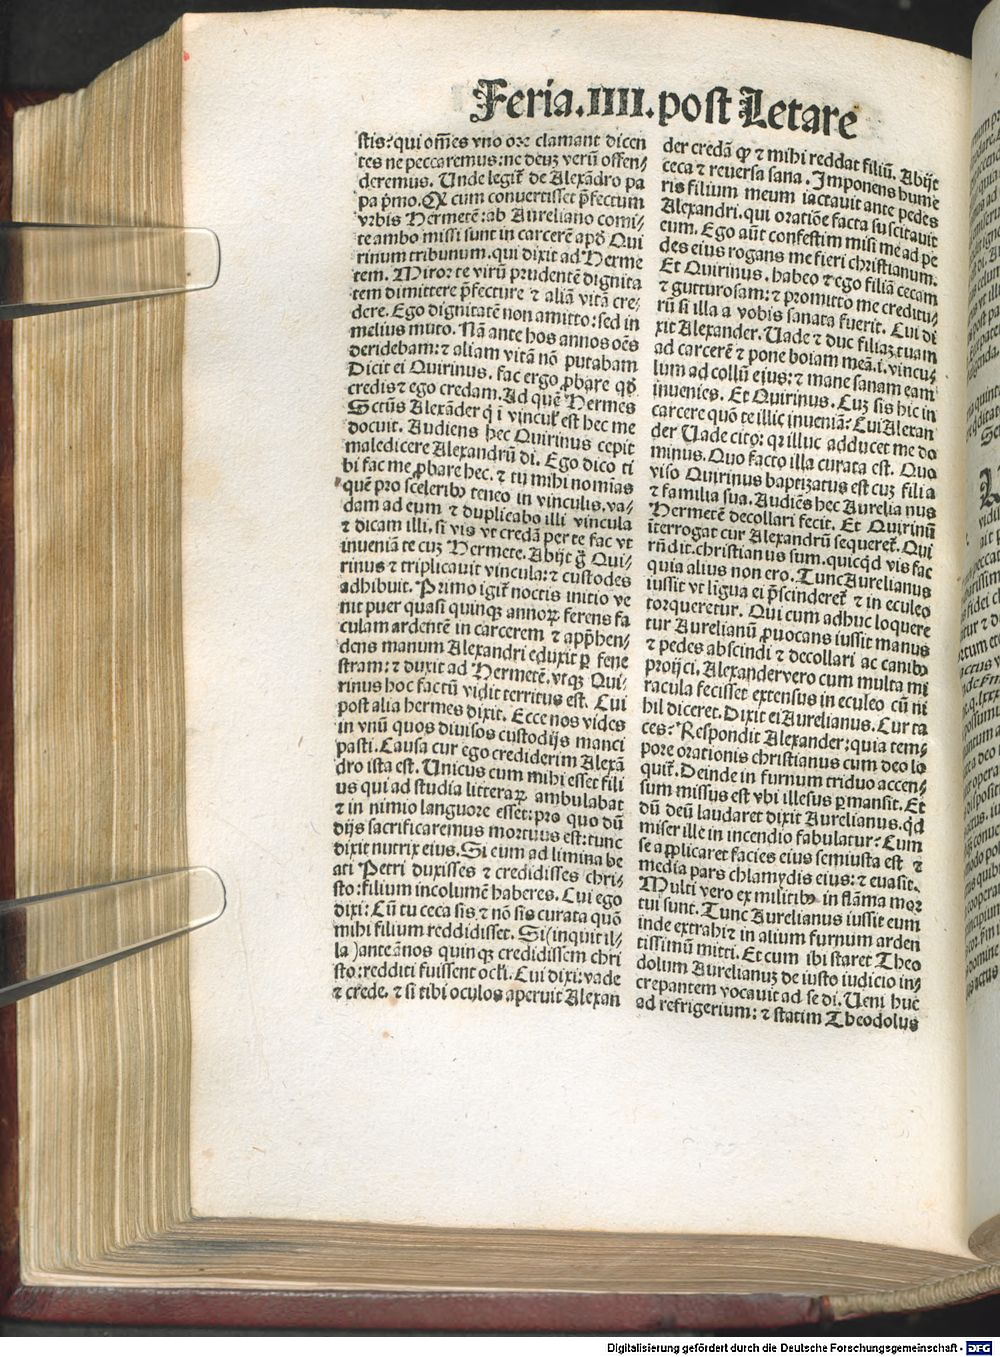 Feria.IIII.post Letare
stis? qui om̃es vno ore clamant dicen
tes ne peccaremus: ne deuȝ verū offen⸗
deremus. Unde legit̄ de Alexādro pa
pa p̄mo. Qꝫ cum conuertisset p̄fectum
vrbis Hermetē: ab Aureliano comi⸗
te ambo missi sunt in carcerē apd̄ Qui
rinum tribunum. qui dixit ad Herme
tem. Miror te virū prudentē dignita
tem dimittere p̄fecture ⁊ aliā vitā cre⸗
dere. Ego dignitatē non amitto: sed in
melius muto. Nā ante hos annos oēs
deridebam: ⁊ aliam vitā nō putabam
Dicit ei Quirinus. fac ergo ꝓbare qd̄
credis ⁊ ego credam. Ad quē Hermes
Sctūs Alexāder q̄ i vincul' est hec me
docuit. Audiens hec Quirinus cepit
maledicere Alexandrū di. Ego dico ti
bi fac me ꝓbare hec. ⁊ tu mihi nomīas
quē pro sceleribꝰ teneo in vinculis. va⸗
dam ad eum ⁊ duplicabo illi vincula
⁊ dicam illi. si vis vt credā per te fac vt
inueniā te cuȝ Hermete. Abijt g̊ Qui⸗
rinus ⁊ triplicauit vincula: ⁊ custodes
adhibuit. Primo igit̄ noctis initio ve
nit puer quasi quinqꝫ annoꝝ ferens fa
culam ardentē in carcerem ⁊ app̄hen⸗
dens manum Alexandri eduxit ꝑ fene
stram: ⁊ duxit ad Hermetē. vtqꝫ Qui⸗
rinus hoc factū vidit territus est. Cui
post alia hermes dixit. Ecce nos vides
in vnū quos diuisos custodijs manci
pasti. Causa cur ego crediderim Alexā
dro ista est. Unicus cum mihi esset fili
us qui ad studia litteraꝝ ambulabat
⁊ in nimio languore esset: pro quo dū
dijs sacrificaremus mortuus est: tunc
dixit nutrix eius. Si eum ad limina be
ati Petri duxisses ⁊ credidisses chri⸗
sto: filium incolumē haberes. Cui ego
dixi: Cū tu ceca sis ⁊ nō sis curata quō
mihi filium reddidisset. Si (inquit il⸗
la) ante ānos quinqꝫ credidissem chri
sto: redditi fuissent ocl̄i. Cui dixi: vade
⁊ crede. ⁊ si tibi oculos aperuit Alexan
der credā ꝙ ⁊ mihi reddat filiū. Abijt
ceca ⁊ reuersa sana. Imponens hume
ris filium meum iactauit ante pedes
Alexandri. qui oratiōe facta suscitauit
eum. Ego aūt confestim misi me ad pe
des eius rogans me fieri christianum.
Et Quirinus. habeo ⁊ ego filiā cecam
⁊ gutturosam: ⁊ promitto me creditu⸗
rū si illa a vobis sanata fuerit. Cui di
xit Alexander. Uade ⁊ duc filiaȝ tuam
ad carcerē ⁊ pone boiam meā.i. vincu⸗
lum ad collū eius: ⁊ mane sanam eam
inuenies. Et Quirinus. Cuȝ sis hic in
carcere quō te illic inueniā? Cui Alexan
der Uade cito: qꝛ illuc adducet me do
minus. Quo facto illa curata est. Quo
viso Quirinus baptizatus est cuȝ filia
⁊ familia sua. Audiēs hec Aurelianus
Hermetē decollari fecit. Et Quirinū
īterrogat cur Alexandrū sequeret̄. Qui
rn̄dit. christianus sum. quicqd̄ vis fac
quia alius non ero. Tunc Aurelianus
iussit vt ligua ei p̄scinderet̄ ⁊ in eculeo
torqueretur. Qui cum adhuc loquere
tur Aurelianū ꝓuocans iussit manus
⁊ pedes abscindi ⁊ decollari ac canibꝰ
proijci. Alexander vero cum multa mi
racula fecisset extensus in eculeo cū ni
hil diceret. Dixit ei Aurelianus. Cur ta
ces? Respondit Alexander: quia tem⸗
pore orationis christianus cum deo lo
quit̄. Deinde in furnum triduo accen⸗
sum missus est vbi illesus ꝑmansit. Et
dū deū laudaret dixit Aurelianus. qd̄
miser ille in incendio fabulatur? Cum
se aꝓplicaret facies eius semiusta est ⁊
media pars chlamydis eius: ⁊ euasit.
Multi vero ex militibꝰ in flāma mor
tui sunt. Tunc Aurelianus iussit eum
inde extrahi ⁊ in alium furnum arden
tissimū mitti. Et cum ibi staret Theo
dolum Aurelianuȝ de iusto iudicio in⸗
crepantem vocauit ad se di. Ueni huc
ad refrigerium: ⁊ statim Theodolus
Digitalisierung gefördert durch die Deutsche Forschungsgemeinschaft - DFG